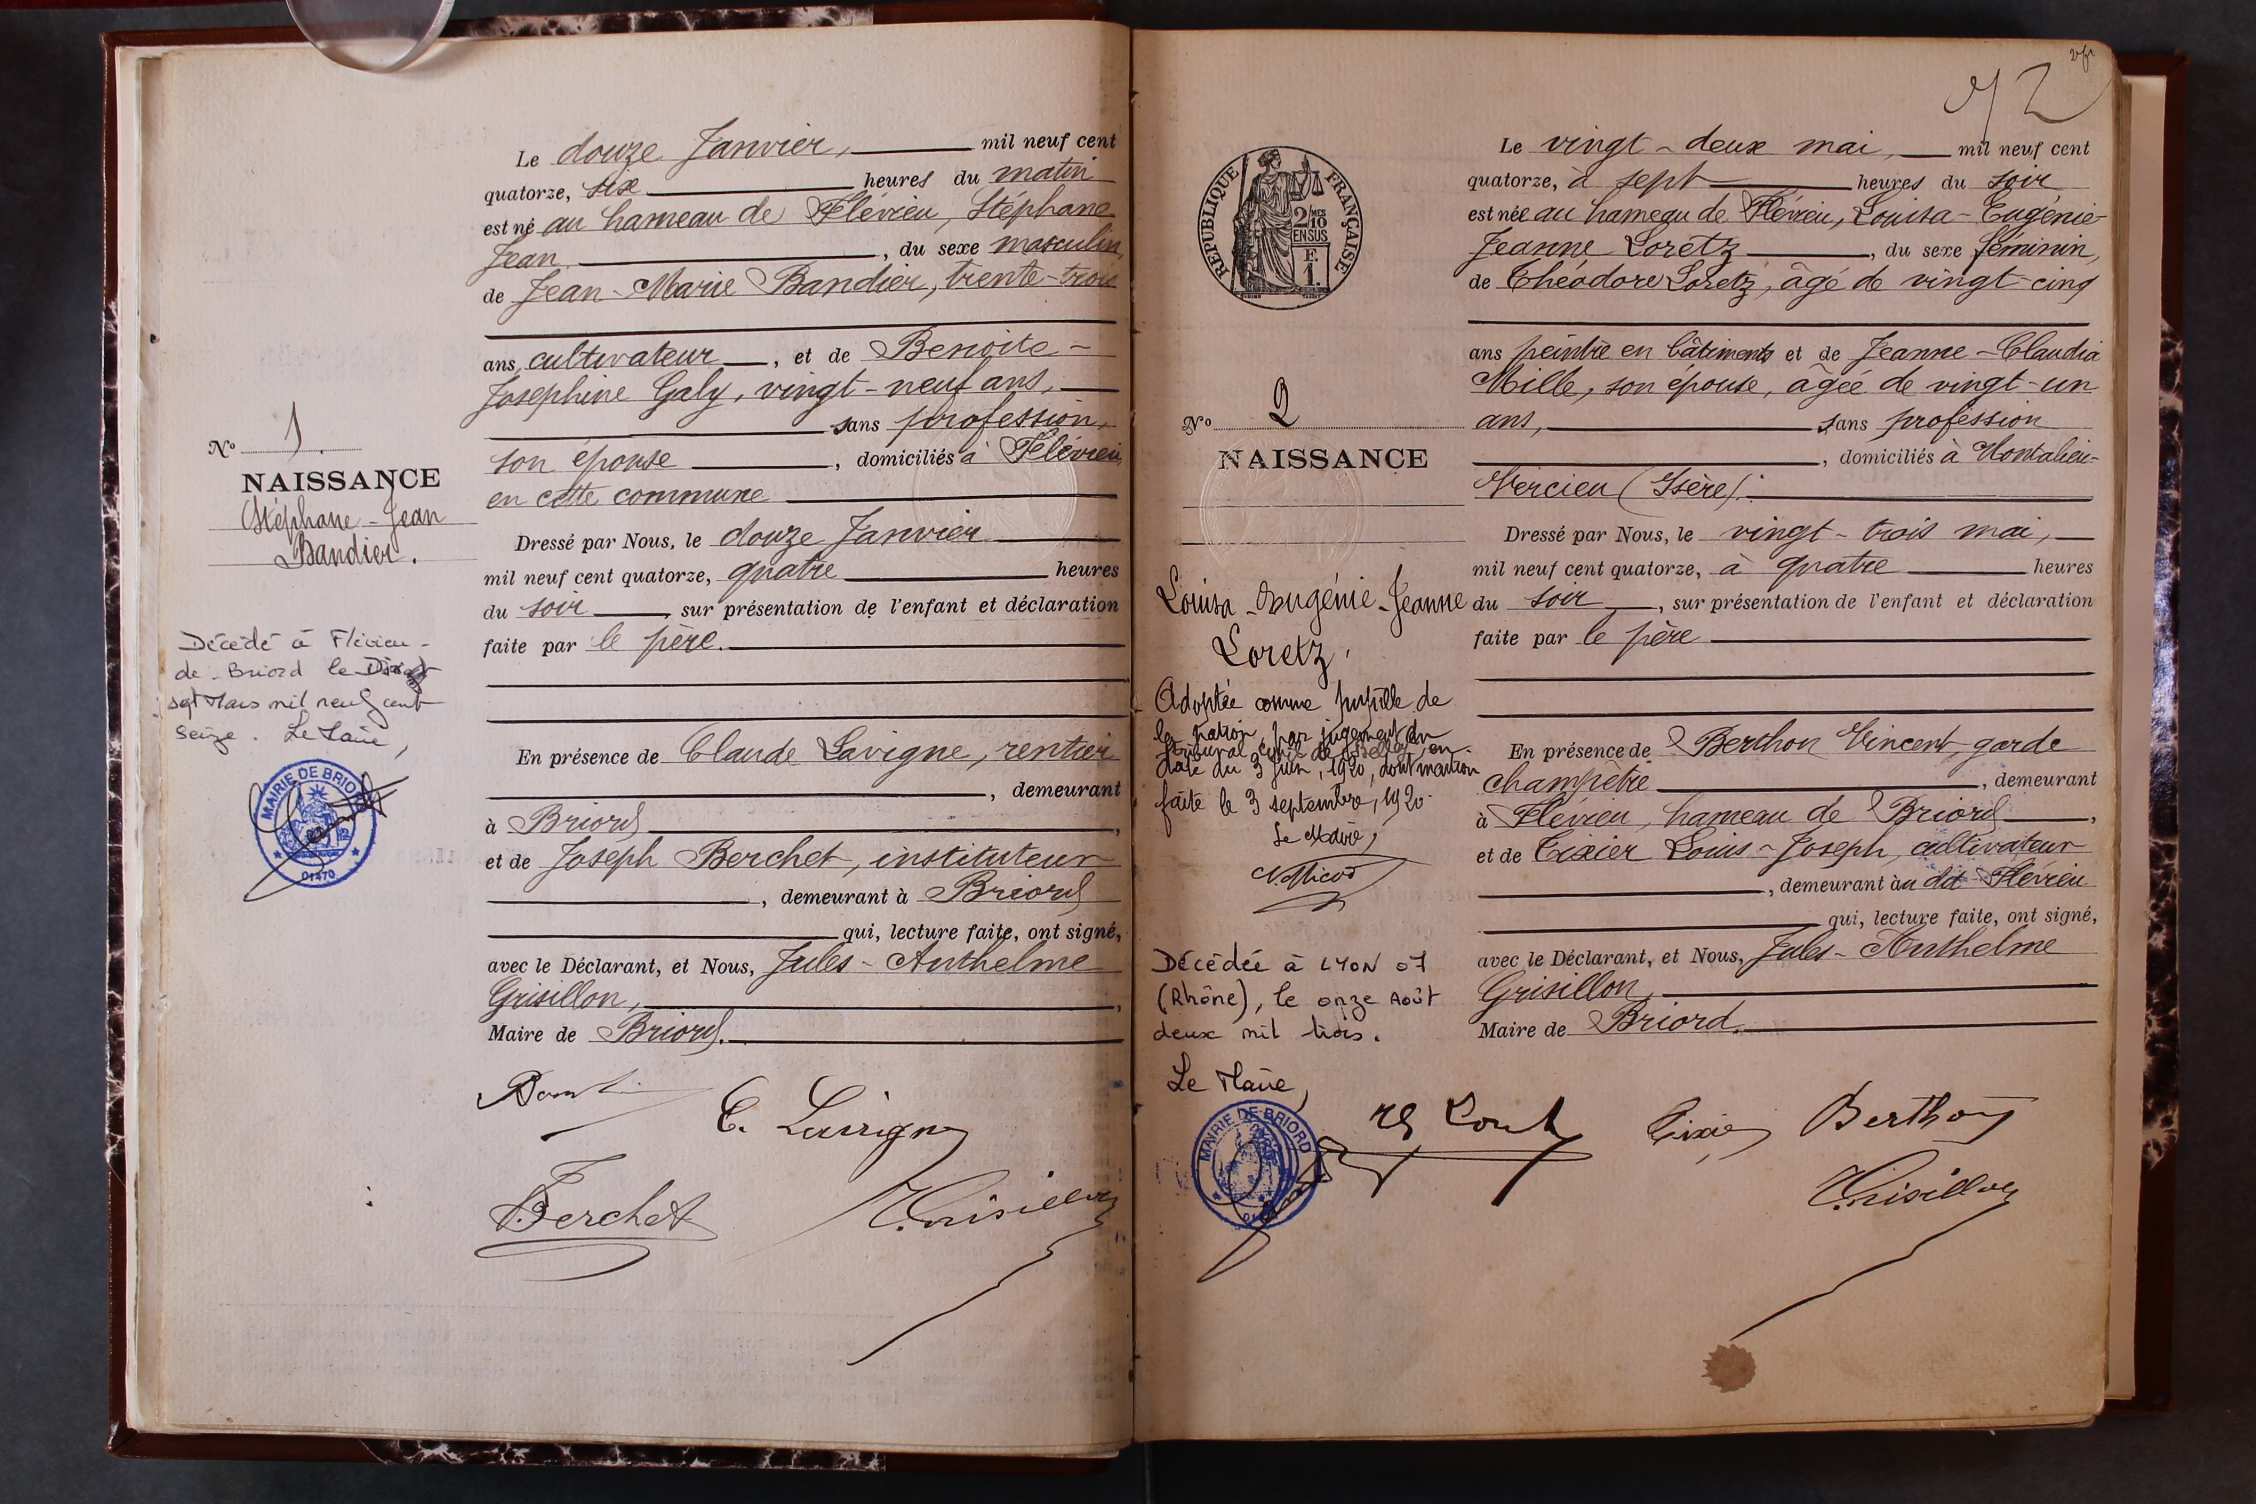 Le douze Janvier, mil neuf cent
quatorze, six heures du matin
est né au hameau de Flévieu, Stéphane
Jean, du sexe masculin,
de Jean-Marie Bandier, trente-trois
ans, cultivateur, et de Benoite-
Joséphine Galy, vingt-neuf ans,
sans profession,
son épouse, domiciliés à Flévieu,
en cette commune
Dressé par Nous, le douze Janvier
mil neuf cent quatorze, quatre heures
du soir, sur présentation de l'enfant et déclaration
faite par le père.
En présence de Claude Lavigne, rentier
, demeurant
à Briord,
et de Joseph Berchet, instituteur
, demeurant à Briord
qui, lecture faite, ont signé,
avec le Déclarant, et Nous, Jules-Anthelme
Grisillon,
Maire de Briord.
C. Lavigne
Berchet
Grisillon
No 1.
NAISSANCE
Stéphane-Jean
Bandier.
Décédé à Flévieu-
de-Briord le Dix
sept Mars mil neuf cent
seize. Le Maire,
MAIRIE DE BRIORD
01470
92
RÉPUBLIQUE FRANÇAISE
2/10MES
EN SUS
F.
1.
No 2
NAISSANCE
Louisa-Eugénie-Jeanne
Loretz.
Adoptée comme pupille de
la nation, par jugement du
tribunal civil de Belley, en
date du 3 juin, 1920, dont mention
faite le 3 septembre, 1920.
Le Maire,
N. Micod
Décédée à LYON 07
(Rhône), le onze Août
deux mil trois.
Le Maire,
MAIRIE DE BRIORD
Le vingt-deux mai, mil neuf cent
quatorze, à sept heures du soir
est née au hameau de Flévieu, Louisa-Eugénie-
Jeanne Loretz, du sexe féminin,
de Théodore Loretz, âgé de vingt-cinq
ans peintre en bâtiments et de Jeanne-Claudia
Mille, son épouse, âgée de vingt-un
ans, sans profession
, domiciliés à Montalieu-
Vercieu (Isère).
Dressé par Nous, le vingt-trois mai,
mil neuf cent quatorze, à quatre heures
du soir, sur présentation de l'enfant et déclaration
faite par le père
En présence de Berthon Vincent, garde
champêtre, demeurant
à Flévieu, hameau de Briord,
et de Tixier Louis-Joseph, cultivateur
, demeurant au dit Flévieu
qui, lecture faite, ont signé,
avec le Déclarant, et Nous, Jules-Anthelme
Grisillon,
Maire de Briord.
Tixier Berthon
Grisillon